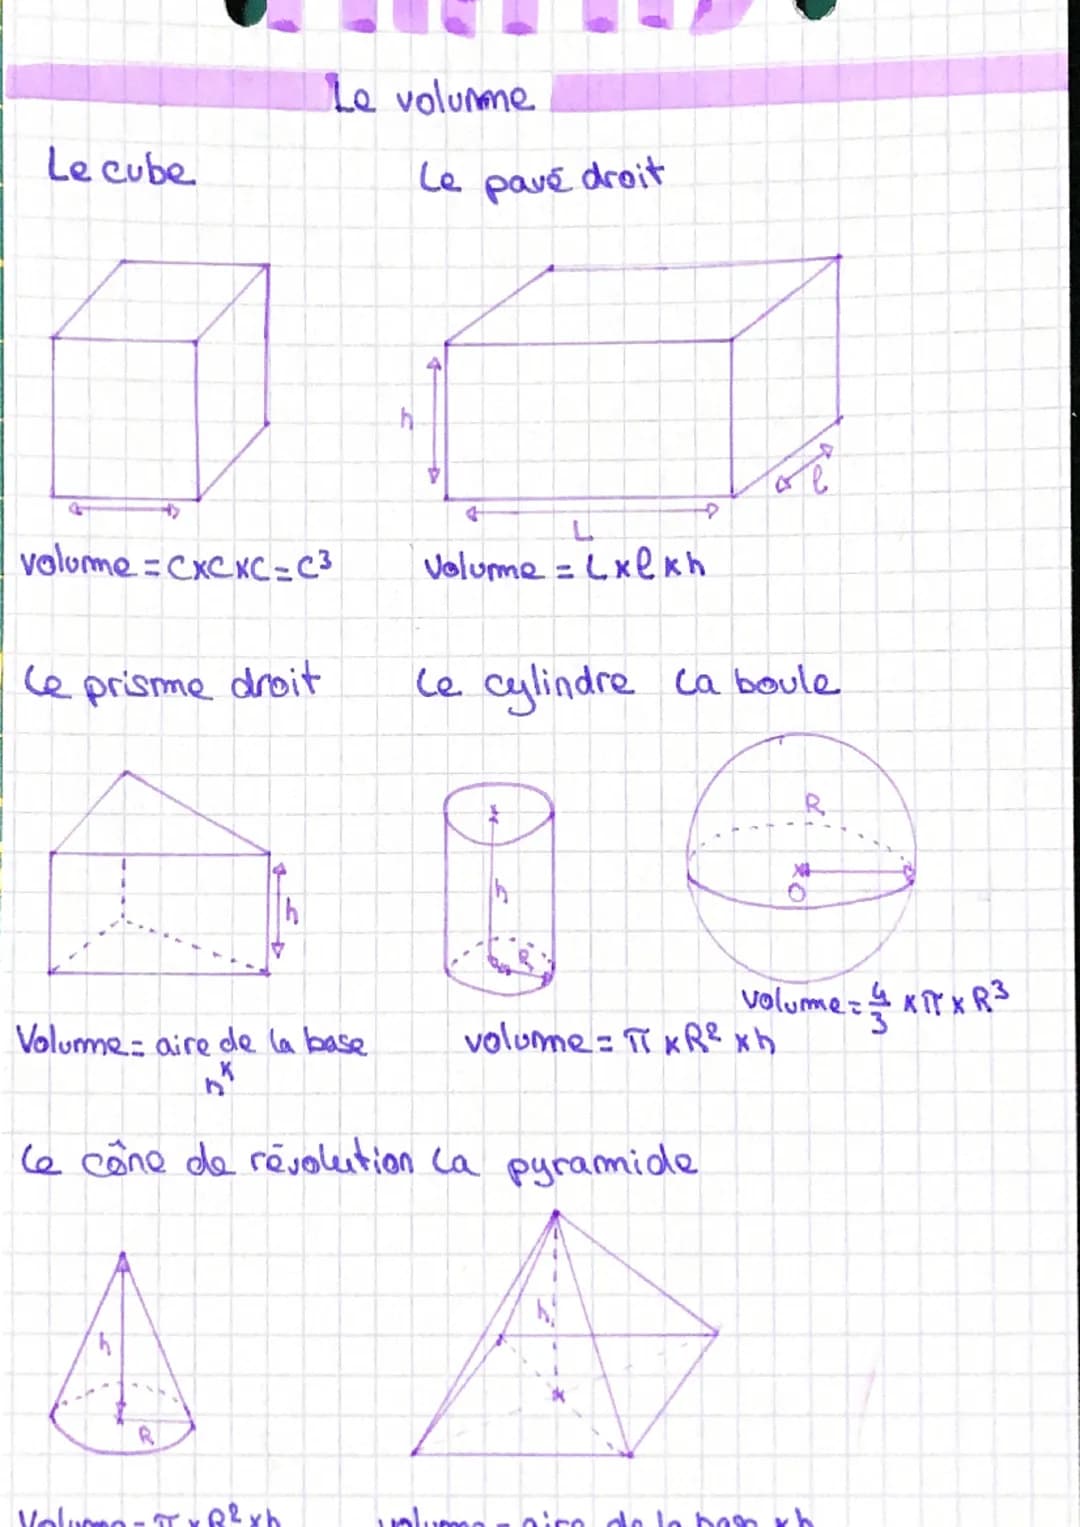 Le volume
Le cube Le pavé droit
h
l
L
volume = c×c×c = c³ Volume = L×l×h
Le prisme droit Le cylindre La boule
R
h h
O
R
volume = 4/3 × π × R³
Volume = aire de la base volume = π × R² × h
×
h
Le cône de révolution La pyramide
h
h
R
Volume = π × R² × h volume = aire de la base × h